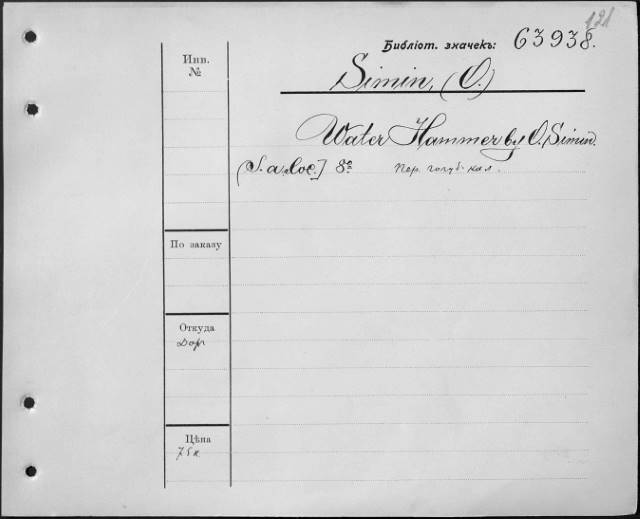 121
Библіот. значекъ: 63938.
Инв.
№
Simin, (O.)
Water Hammer by O. Simin.
(S. a. loc.] 8º Пер. голуб. кал.
По заказу
Откуда
Дар
Цѣна
75к